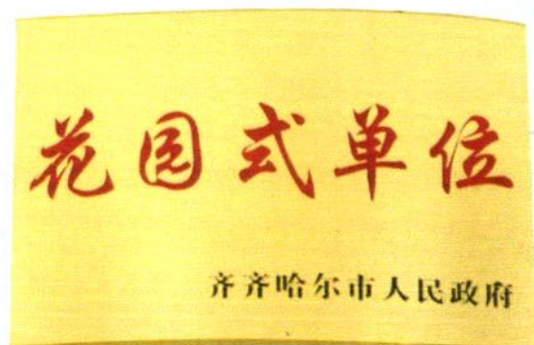 花园式单位
齐齐哈尔市人民政府